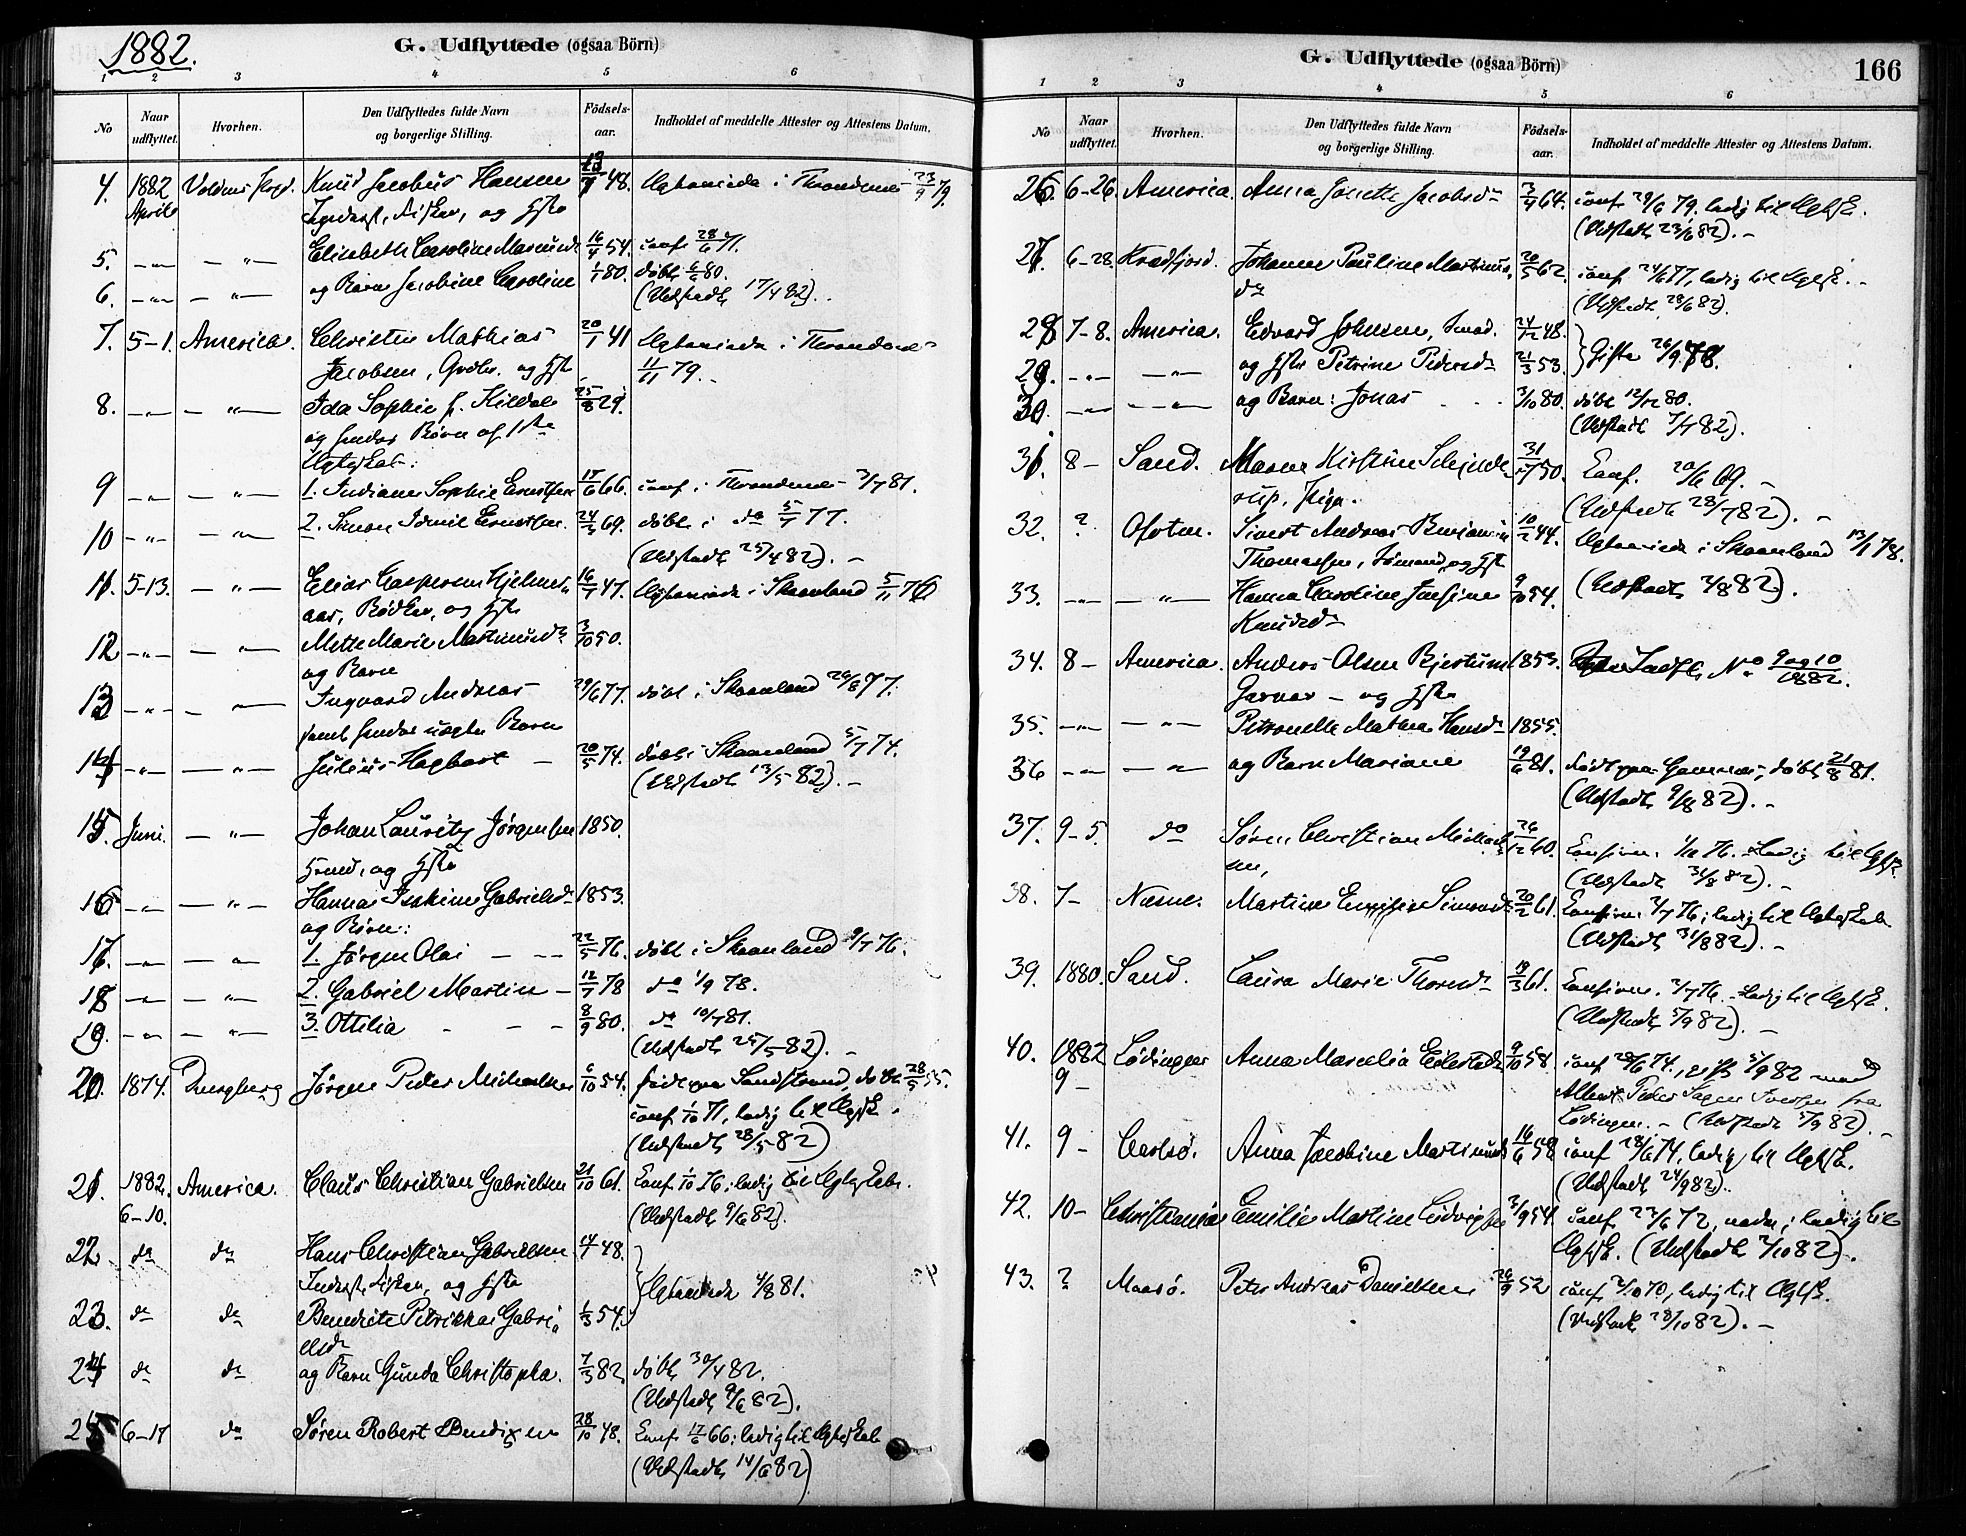 1882.
G. Udflyttede (ogsaa Börn)
1 2 3 4 5 6
No
Naar udflyttet.
Hvorhen.
Den Udflyttedes fulde Navn og borgerlige Stilling.
Födsels-aar.
Indholdet af meddelte Attester og Attestens Datum.
4. 1882 April Knud Jacobus Hansen 48. Ægteviede i Throndenes 23/9 79.
og Hstr
5. Elisabeth Caroline Marcusd. 16/4 54. conf. 28/6 71.
6. og Barn Jacobine Caroline 80. döbt 80.
(Udstedt 17/4 82).
7. 5-1. America. Christen Mathias 20/1 41 Ægteviede i Throndenes
Jacobsen, og Hstr 11/11 79.
8. Ida Sophie f. Kildal 25/8 29.
og hendes Börn af 1ste
Ægteskab:
9 1. Indiane Sophie Erntsen 17/6 66. conf. i Throndenes 3/7 81.
10 2. Simon 24/3 69. döbt i do 5/7 77.
(Udstedt 25/4 82).
11. 5-13. Elias Caspersen Hjelmes- 16/7 47. Ægteviede i Skaanland 5/11 76
aas, Bödker, og Hstr
12 Mette Marie Martinusd. 3/10 50.
og Barn
13 Ingvard Andreas 29/6 77. döbt i Skaanland 26/8 77.
samt hendes uægte Barn
14 Julius Hagbart 20/5 74. döbt i Skaanland 5/7 74.
(Udstedt 13/5 82).
15. Juni. Johan Lauritz Jørgensen 1850.
og Hstr
16 Hanna Gabrielsd. 1853.
og Börn:
17. 1. Jørgen Olai 22/5 76. döbt i Skaanland 9/7 76.
18 2. Gabriel Martin 12/7 78 do 1/9 78.
19. 3. Ottilia 8/9 80. do 10/7 81.
(Udstedt 25/5 82).
20. 1874. Jørgen Peder Michaelsen 6/10 54. født paa Sandstrand, döbt 28/5 55.
conf. 1/10 71, ledig til Ægtsk.
(Udstedt 28/5 82)
21. 1882. America. Claus Christian Gabrielsen 21/10 61. Conf. 1/10 76; ledig til Ægteskab.
6-10. (Udstedt 9/6 82).
22. do do Hans Christian Gabrielsen 14/7 48.
Inderst, Fisker, og Hstr Ægteviede 4/8 81.
23. do do Benedicte Petrikka Gabri- 1/3 54.
elsd.
24 do do og Barn Gunda Christopha. 7/3 82. döbt 30/4 82.
(Udstedt 9/6 82).
25 6-14 do Søren Robert Bendixen 28/10 48. Conf. 17/6 66; ledig til Ægteskab
(Udstedt 14/6 82)
G. Udflyttede (ogsaa Börn)
166
1 2 3 4 5 6
No
Naar udflyttet.
Hvorhen.
Den Udflyttedes fulde Navn og borgerlige Stilling.
Födsels-aar.
Indholdet af meddelte Attester og Attestens Datum.
26. 6-26. America. Anna Jonette Jacobsd. 3/4 64. conf. 29/6 79. ledig til Ægtsk.
(Udstedt 23/6 82).
27. 6-28. Kvædfjord. Johanne Pauline Martinus- 20/5 62. conf. 24/6 77, ledig til Ægtsk.
dr (Udstedt 28/6 82).
28. 7-8. America. Edvard Johnsen, 24/12 48.
29. og Hstr Petrine Pedersd. 21/3 53. Gifte 26/9 78.
30. og Barn: Jonas 3/10 80. döbt 12/12 80.
(Udstedt 7/7 82).
31. 8- Sand. Maren Kirstine Schjelde- 31/12 50. Conf. 20/6 69.
rup, Pige. (Udstedt 28/7 82).
32. ? Ofoten. Sivert Andreas Benjamin 10/2 44. Ægteviede i Skaanland 13/1 78.
Thomassen, Sømand, og Hstr
33. Hanna Caroline Josine 9/10 54. (Udstedt 2/8 82).
Knudsd.
34. 8- America. Anders Olsen Bjertum 1853. Indfl. No 9 og 10/1882.
Garver og Hstr
35. Petronelle Mathea Hansd. 1855.
36 og Barn Mariane 19/6 81. födt paa döbt 21/8 81.
(Udstedt 9/8 82).
37. 9-5. do Søren Christian Michael- 26/12 60. Confirm. 1/10 76. Ledig til Ægtsk.
sen, (Udstedt 31/8 82).
38. 7- Næsne. Martine Simonsd. 20/2 61. Confirm. 2/7 76; ledig til Ægteskab
(Udstedt 31/8 82).
39. 1880. Sand. Laura Marie Thorsd. 19/3 61. Confirm. 2/7 76. Ledig til Ægtsk.
(Udstedt 5/9 82).
40. 1882 Lödingen Anna Marcelia 9/10 58. conf. 28/6 74., gift 5/9 82 med
9- Albert Peder fra
Lödingen. (Udstedt 5/9 82).
41. 9- Carlsö. Anna Jacobine Martinusd. 16/6 58 conf. 28/6 74, ledig til Ægtsk.
(Udstedt 24/9 82).
42. 10- Christiania Emilie Martine Ludvigsen 3/9 54. conf. 23/6 72, ledig til
Ægtsk. (Udstedt 2/10 82).
43. ? Maasö. Peter Andreas Danielsen 26/9 52 conf. 2/10 70, ledig til Ægtsk.
(Udstedt 28/10 82).